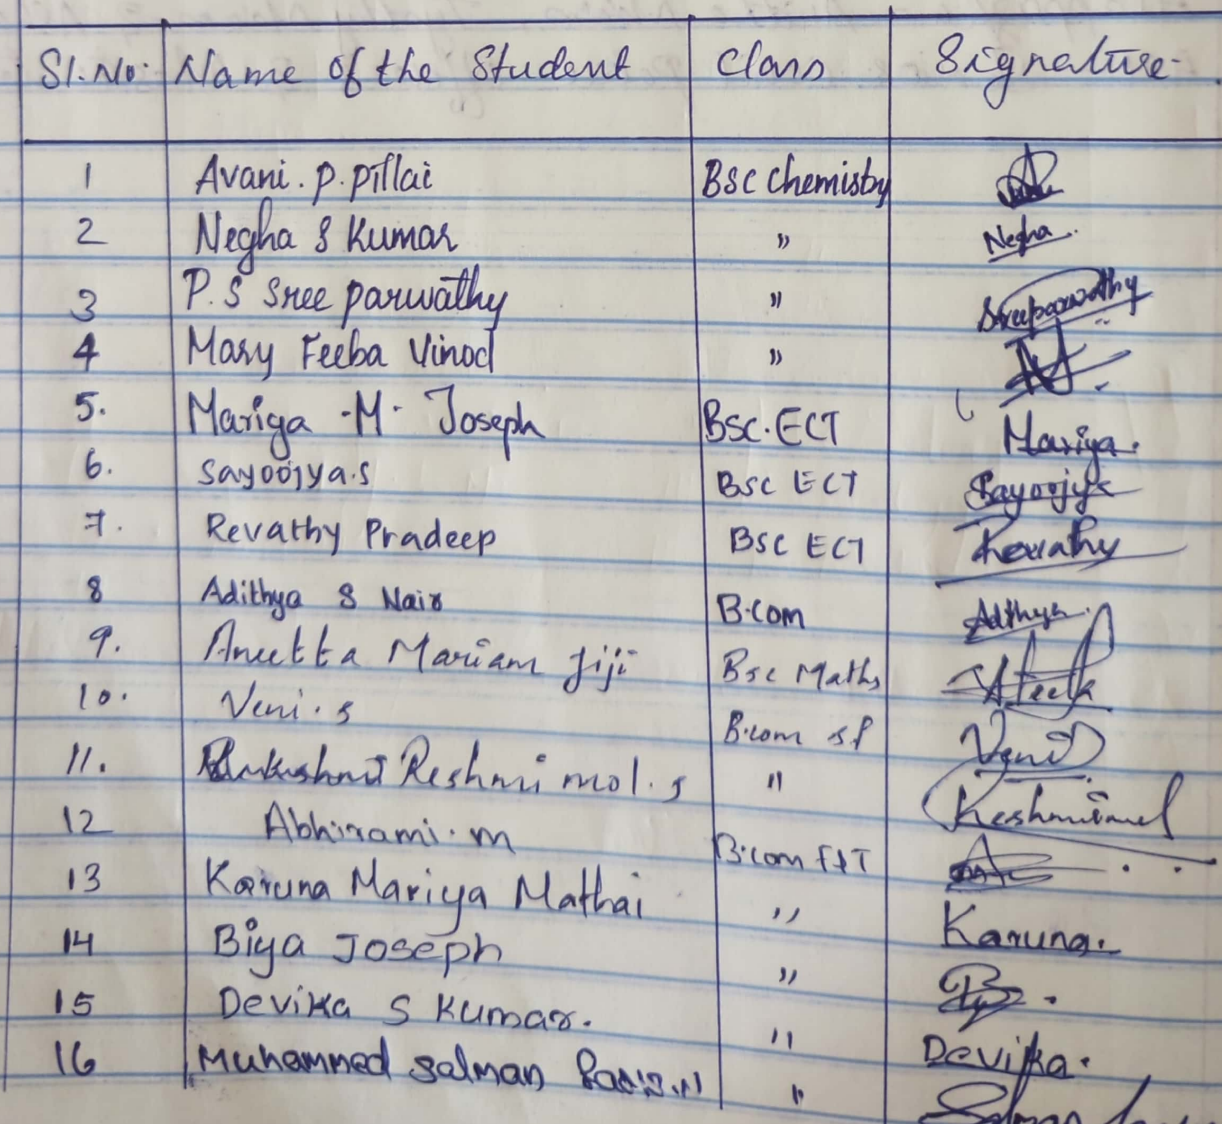 Sl.No: Name of the Student Class Signature
1 Avani.P.Pillai BSC Chemistry
2 Negha S Kumar " Negha.
3 P.S Sree parwathy " Sreeparwathy
4 Mary Feeba Vinod "
5. Mariya -M. Joseph BSC.ECT Mariya.
6. Sayoojya.S BSC ECT Sayoojya
7. Revathy Pradeep BSC ECT Revathy
8 Adithya S Nair B.Com Adithya.
9. Aneetta Mariam Jiji Bsc Maths
10. Veni.s B.com sf Veni
11. Reshmi mol.s " Reshmimol
12 Abhirami.m B.com
13 Karuna Mariya Mathai " Karuna.
14 Biya Joseph "
15 Devika S Kumar. " Devika.
16 Muhammed Salman " Salman